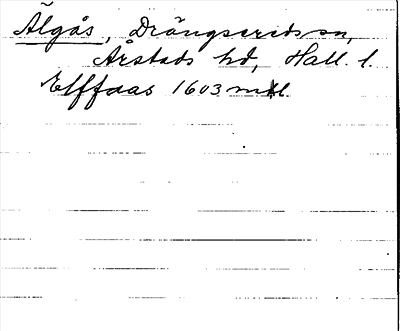 Älgås, Drängsereds sn,
Årstads hd, Hall. l.
Elffaas 1603 mtl